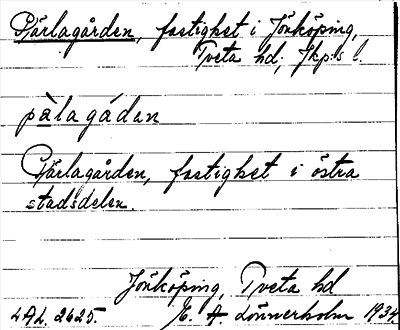 Pärlagården, fastighet i Jönköping,
Tveta hd, Jkp:s l.
pàlagáden
Pärlagården, fastighet i östra
stadsdelen.
Jönköping, Tveta hd
LAL. 2625. E. A. Lönnerholm 1934.